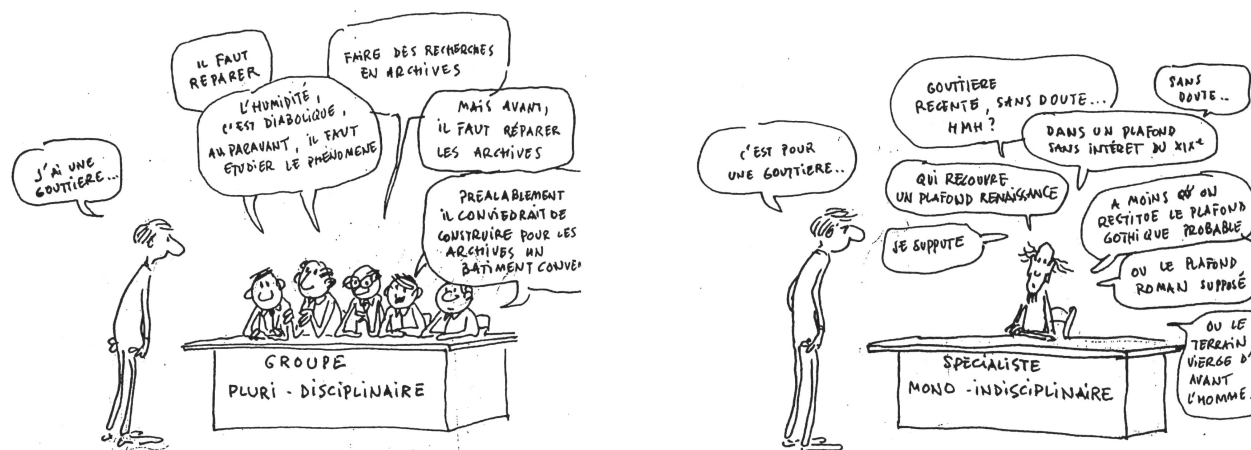 J'AI UNE
GOUTTIERE...
IL FAUT
REPARER
L'HUMIDITÉ,
C'EST DIABOLIQUE,
AUPARAVANT, IL FAUT
ETUDIER LE PHENOMENE
FAIRE DES RECHERCHES
EN ARCHIVES
MAIS AVANT,
IL FAUT RÉPARER
LES ARCHIVES
PREALABLEMENT
IL CONVIEDRAIT DE
CONSTRUIRE POUR LES
ARCHIVES UN
BATIMENT CONVE
GROUPE
PLURI - DISCIPLINAIRE
C'EST POUR
UNE GOUTTIERE..
GOUTTIERE
RECENTE, SANS DOUTE...
HMH?
SANS
DOUTE..
DANS UN PLAFOND
SANS INTÉRET DU XIXe
QUI RECOUVRE
UN PLAFOND RENAISSANCE
JE SUPPUTE
A MOINS QU'ON
RESTITUE LE PLAFOND
GOTHIQUE PROBABLE
OU LE PLAFOND
ROMAN SUPPOSÉ
OU LE
TERRAIN
VIERGE D'
AVANT
L'HOMME.
SPECIALISTE
MONO - INDISCIPLINAIRE